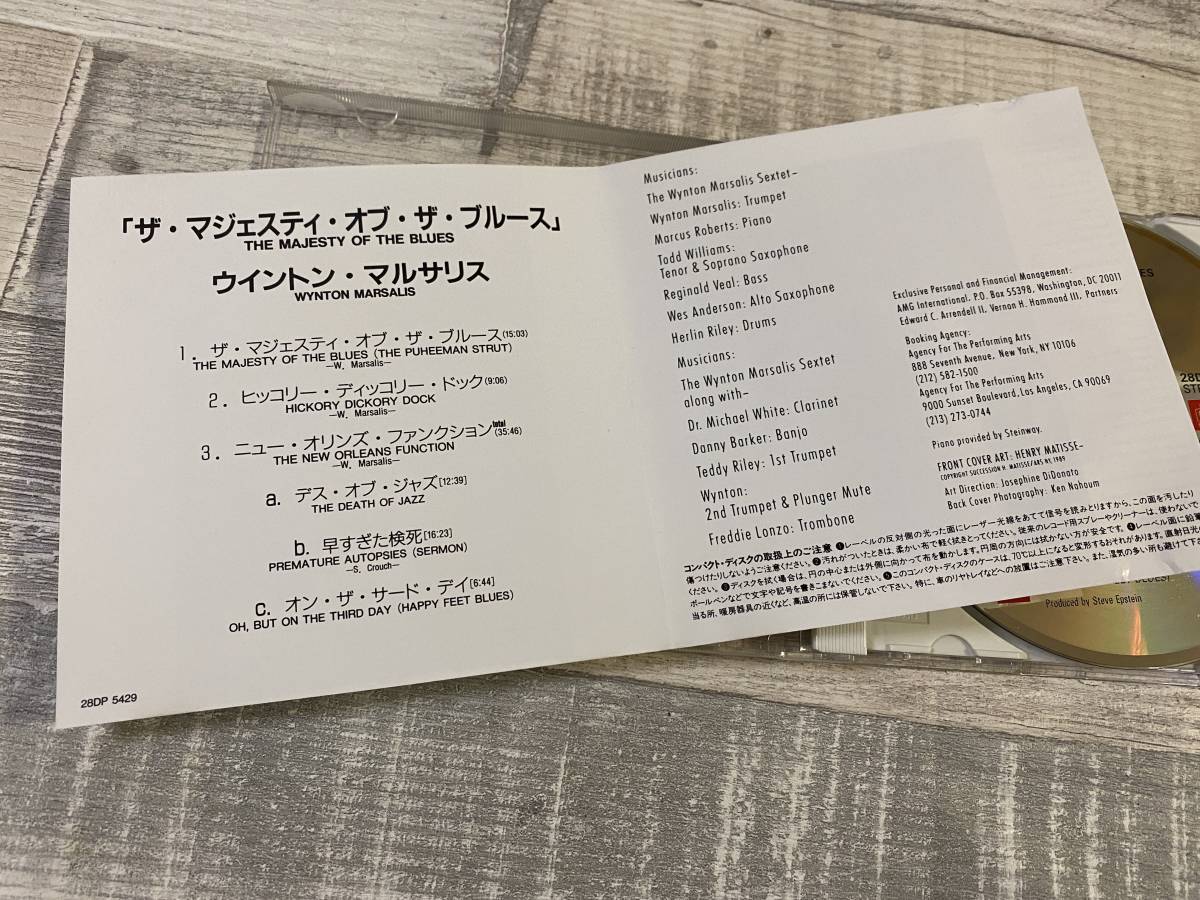 「ザ・マジェスティ・オブ・ザ・ブルース」
THE MAJESTY OF THE BLUES
ウイントン・マルサリス
WYNTON MARSALIS
1. ザ・マジェスティ・オブ・ザ・ブルース(15:03)
THE MAJESTY OF THE BLUES (THE PUHEEMAN STRUT)
—W. Marsalis—
2. ヒッコリー・ディッコリー・ドック(9:06)
HICKORY DICKORY DOCK
—W. Marsalis—
3. ニュー・オリンズ・ファンクション total (35:46)
THE NEW ORLEANS FUNCTION
—W. Marsalis—
a. デス・オブ・ジャズ[12:39]
THE DEATH OF JAZZ
b. 早すぎた検死[16:23]
PREMATURE AUTOPSIES (SERMON)
—S. Crouch—
c. オン・ザ・サード・デイ[6:44]
OH, BUT ON THE THIRD DAY (HAPPY FEET BLUES)
28DP 5429
Musicians:
The Wynton Marsalis Sextet–
Wynton Marsalis: Trumpet
Marcus Roberts: Piano
Todd Williams:
Tenor & Soprano Saxophone
Reginald Veal: Bass
Wes Anderson: Alto Saxophone
Herlin Riley: Drums
Musicians:
The Wynton Marsalis Sextet
along with–
Dr. Michael White: Clarinet
Danny Barker: Banjo
Teddy Riley: 1st Trumpet
Wynton:
2nd Trumpet & Plunger Mute
Freddie Lonzo: Trombone
Exclusive Personal and Financial Management:
AMG International. P.O. Box 55398, Washington, DC 20011
Edward C. Arrendell II, Vernon H. Hammond III, Partners
Booking Agency:
Agency For The Performing Arts
888 Seventh Avenue, New York, NY 10106
(212) 582-1500
Agency For The Performing Arts
9000 Sunset Boulevard, Los Angeles, CA 90069
(213) 273-0744
Piano provided by Steinway.
FRONT COVER ART: HENRY MATISSE–
COPYRIGHT SUCCESSION H. MATISSE/ARS NY, 1989
Art Direction: Josephine DiDonato
Back Cover Photography: Ken Nahoum
コンパクト・ディスクの取扱上のご注意 ❶レーベルの反対側の光った面にレーザー光線をあてて信号を読みとりますから、この面を汚したり
傷つけたりしないようご注意ください。❷汚れがついたときは、柔かい布で軽く拭きとってください。従来のレコード用スプレーやクリーナーは、使わないで
ください。❸ディスクを拭く場合は、円の中心または外側に向かって布を動かします。円周の方向には拭かない方が安全です。❹レーベル面に鉛筆
ボールペンなどで文字や記号を書きこまないでください。❺このコンパクト・ディスクのケースは、70℃以上になると変形するおそれがあります。直射日光
当る所、暖房器具の近くなど、高温の所には保管しないで下さい。特に、車のリヤトレイなどへの放置はご注意下さい。また、湿気の多い所も避けて下さ
Produced by Steve Epstein